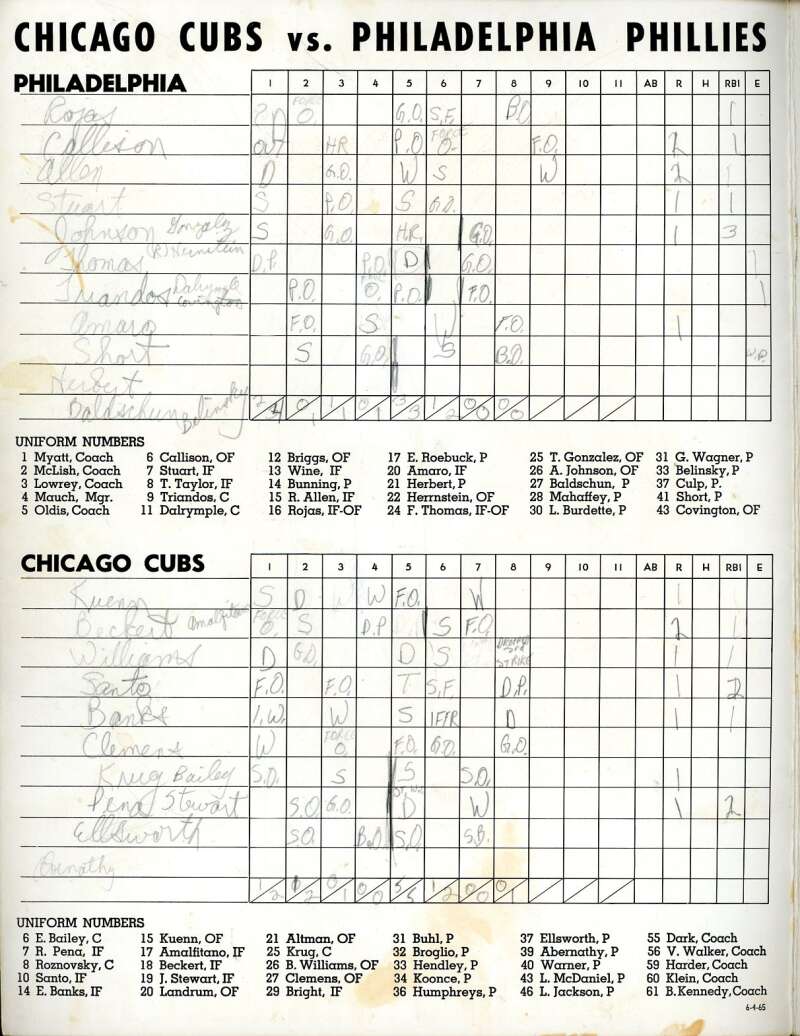 CHICAGO CUBS vs. PHILADELPHIA PHILLIES
PHILADELPHIA 1 2 3 4 5 6 7 8 9 10 11 AB R H RBI E
Rojas FORCE O. G.O. S.F. 1
Callison out HR P.O. FORCE O. F.O. 2 1
Allen D G.O. W S W 2 1
Stuart S P.O. S G.O. 1 1
Johnson Gonzalez S G.O. H.R. G.O 1 3
Thomas (R) Hernstein D.P. P.O. D G.O. 1
Triandos Dalrymple Covington P.O. O. P.O. F.O. 1
Amaro F.O. S W F.O. 1
Short S G.O. S W.P.
Herbert
Baldschun Belinsky
UNIFORM NUMBERS
1 Myatt, Coach 6 Callison, OF 12 Briggs, OF 17 E. Roebuck, P 25 T. Gonzalez, OF 31 G. Wagner, P
2 McLish, Coach 7 Stuart, IF 13 Wine, IF 20 Amaro, IF 26 A. Johnson, OF 33 Belinsky, P
3 Lowrey, Coach 8 T. Taylor, IF 14 Bunning, P 21 Herbert, P 27 Baldschun, P 37 Culp, P.
4 Mauch, Mgr. 9 Triandos, C 15 R. Allen, IF 22 Herrnstein, OF 28 Mahaffey, P 41 Short, P
5 Oldis, Coach 11 Dalrymple, C 16 Rojas, IF-OF 24 F. Thomas, IF-OF 30 L. Burdette, P 43 Covington, OF
CHICAGO CUBS 1 2 3 4 5 6 7 8 9 10 11 AB R H RBI E
Kuenn S D W W F.O. W 1 1
Beckert Amalfitano FORCE O. S D.P S F.O. 2 1
Williams D G.O. D S DROPPED 3rd STRIKE 1 1
Santo F.O. F.O. T S.F. D.P. 1 2
Banks I.W. W S IFFR D 1 1
Clemens W FORCE O F.O. G.O. G.O.
Krug Bailey S.O. S S S.O. 1
Pena Stewart S.O G.O. D W 1 2
Ellsworth S.O S.O
UNIFORM NUMBERS
6 E. Bailey, C 15 Kuenn, OF 21 Altman, OF 31 Buhl, P 37 Ellsworth, P 55 Dark, Coach
7 R. Pena, IF 17 Amalfitano, IF 25 Krug, C 32 Broglio, P 39 Abernathy, P 56 V. Walker, Coach
8 Roznovsky, C 18 Beckert, IF 26 B. Williams, OF 33 Hendley, P 40 Warner, P 59 Harder, Coach
10 Santo, IF 19 J. Stewart, IF 27 Clemens, OF 34 Koonce, P 43 L. McDaniel, P 60 Klein, Coach
14 E. Banks, IF 20 Landrum, OF 29 Bright, IF 36 Humphreys, P 46 L. Jackson, P 61 B. Kennedy, Coach
6-4-65